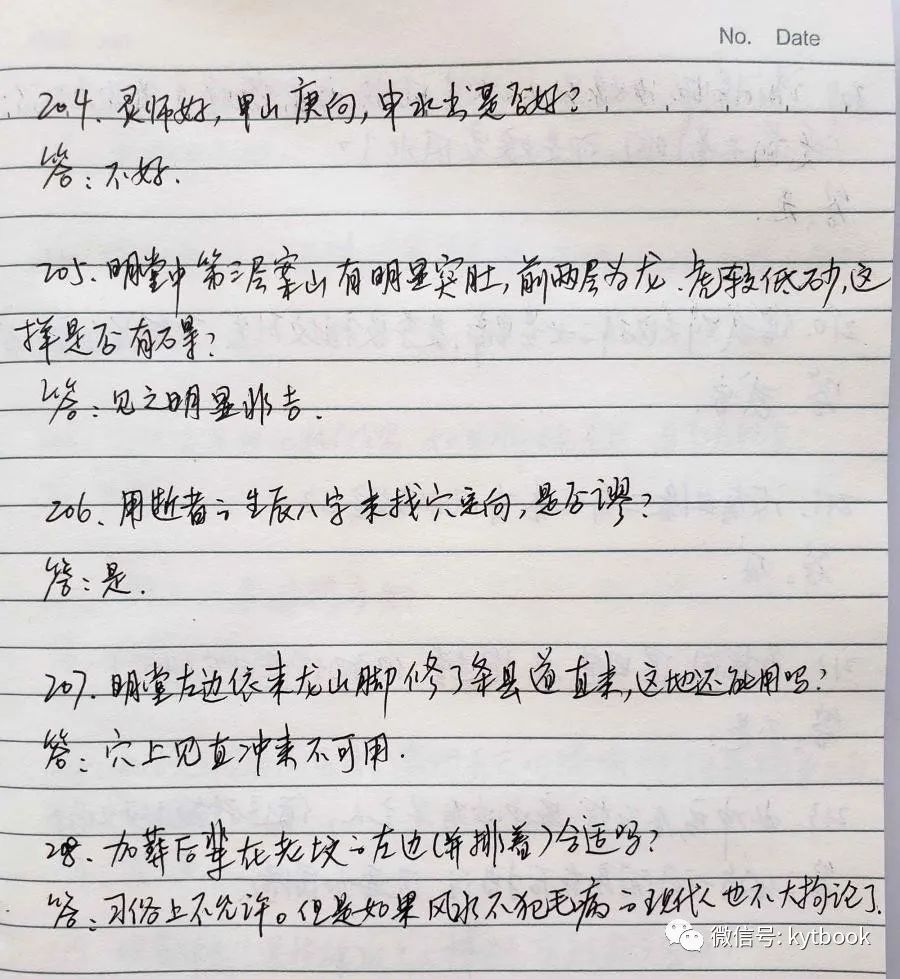 No. Date
204、灵师好,甲山庚向,申水出是否好?
答:不好.
205、明堂中第三层案山有明显突肚,前两层为龙、虎较低砂,这
样是否有碍?
答:见之明显非吉.
206、用逝者之生辰八字来找穴定向,是否谬?
答:是.
207、明堂左边依来龙山脚修了条县道直来,这地还能用吗?
答:穴上见直冲来不可用.
208、加葬后辈在老坟之左边(并排着)合适吗?
答:习俗上不允许。但是如果风水不犯毛病之现代人也不大拘论了.
微信号: kytbook